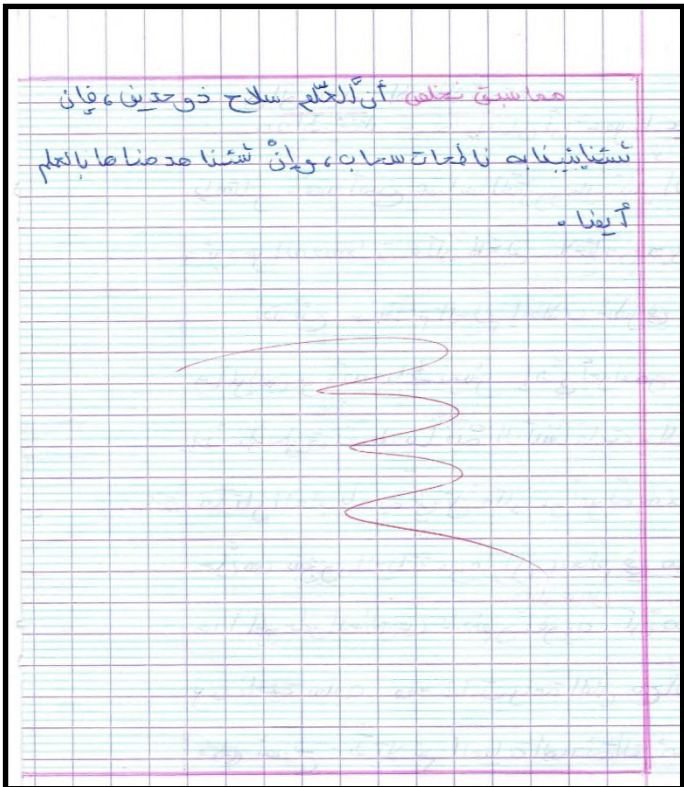 مما سبق نخلص أنَّ العلم سلاح ذو حدين، فإن
شئنا بنينا به ناطحات سحاب، وإنْ شئنا هدمناها بالعلم
أيضا.